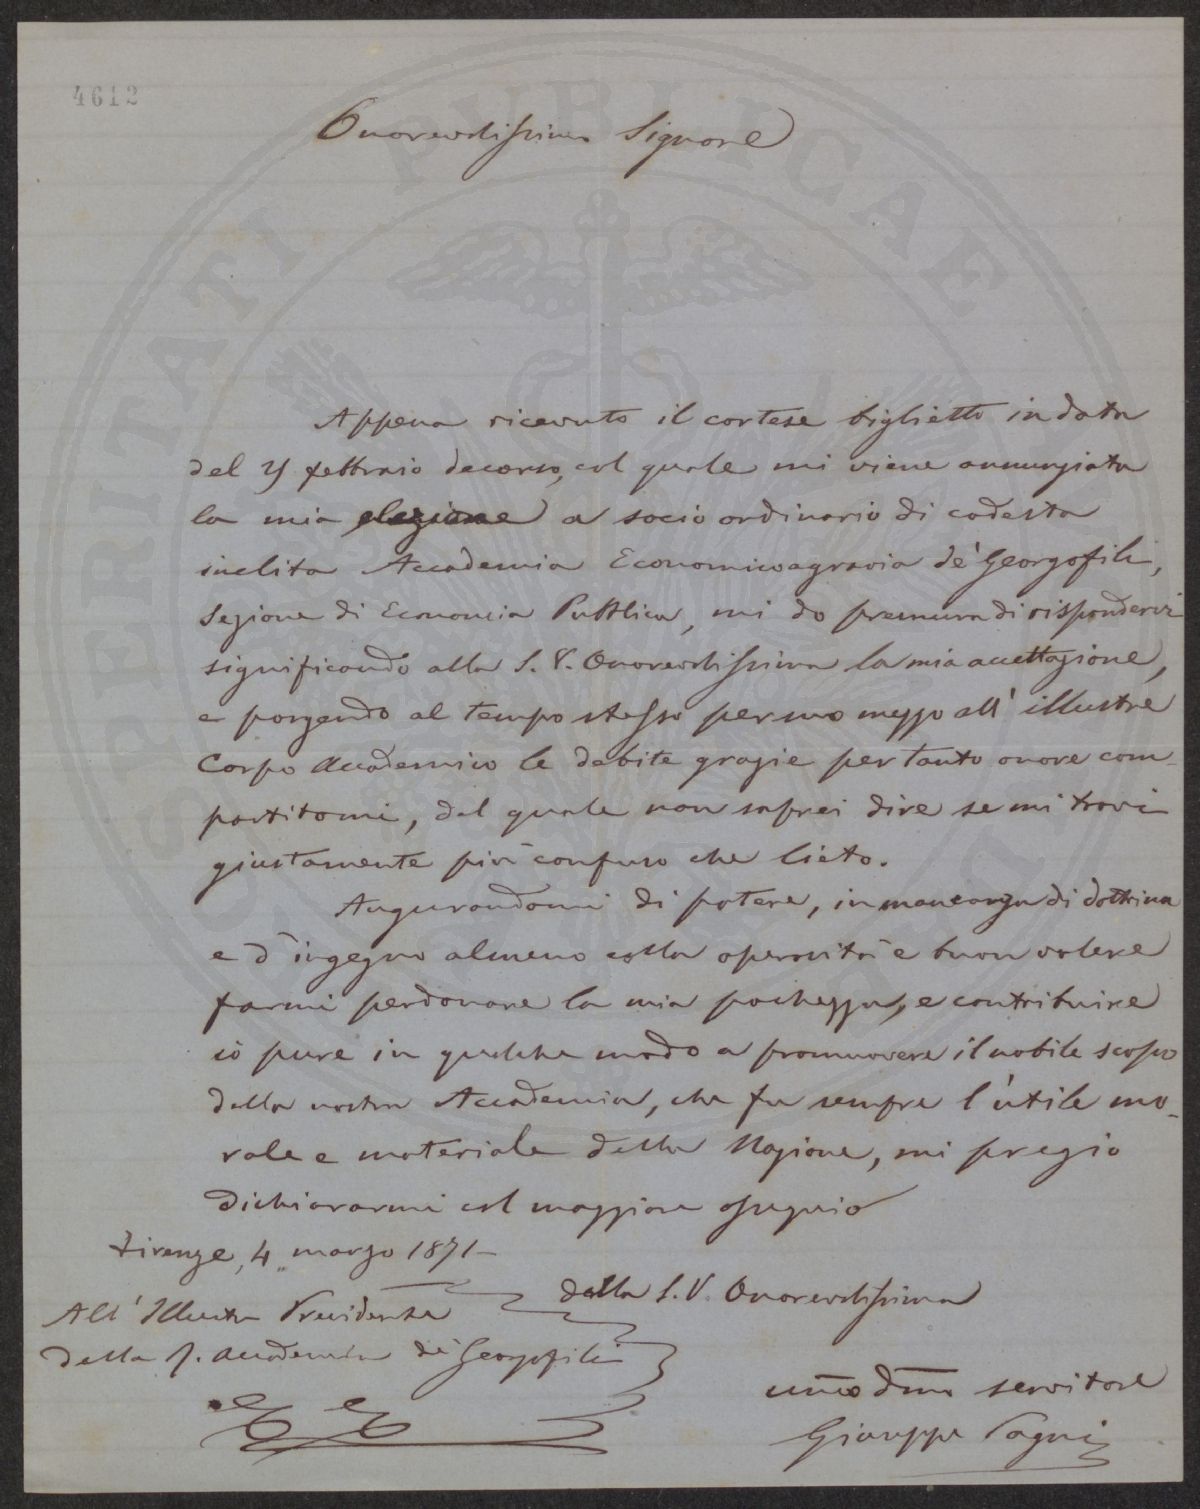 4612
Onorevolissimo Signore
Appena ricevuto il cortese biglietto in data
del febbraio decorso, col quale mi viene annunziata
la mia elezione a socio ordinario di codesta
inclita Accademia Economicoagraria de' Georgofili,
Sezione di Economia Pubblica, mi do premura di rispondervi
significando alla S. V. Onorevolissima la mia accettazione,
e porgendo al tempo stesso per suo mezzo all' illustre
Corpo Accademico le debite grazie per tanto onore com-
partitomi, del quale non saprei dire se mi trovi
giustamente più confuso che lieto.
Augurandomi di potere, in mancanza di dottrina
e d'ingegno almeno colla operosità e buon volere
farmi perdonare la mia pochezza, e contribuire
io pure in qualche modo a promuovere il nobile scopo
della nostra Accademia, che fu sempre l'utile mo-
rale e materiale della Nazione, mi pregio
dichiararmi col maggiore ossequio
Firenze, 4 marzo 1871
della S. V. Onorevolissima
All' Illustre Presidenza
della R. Accademia de' Georgofili
umo dmo servitore
Giuseppe Pagni
PROSPERITATI PUBLICAE